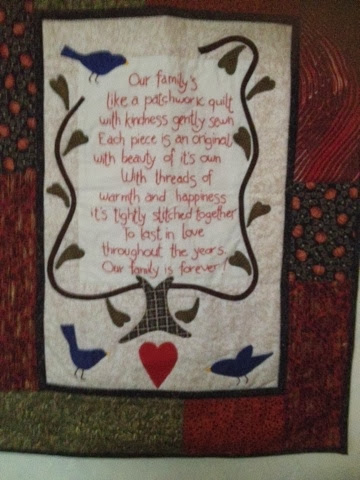 Our family's
like a patchwork quilt
with kindness gently sewn
Each piece is an original
with beauty of it's own
With threads of
warmth and happiness
it's tightly stitched together
To last in love
throughout the years
Our family is forever!